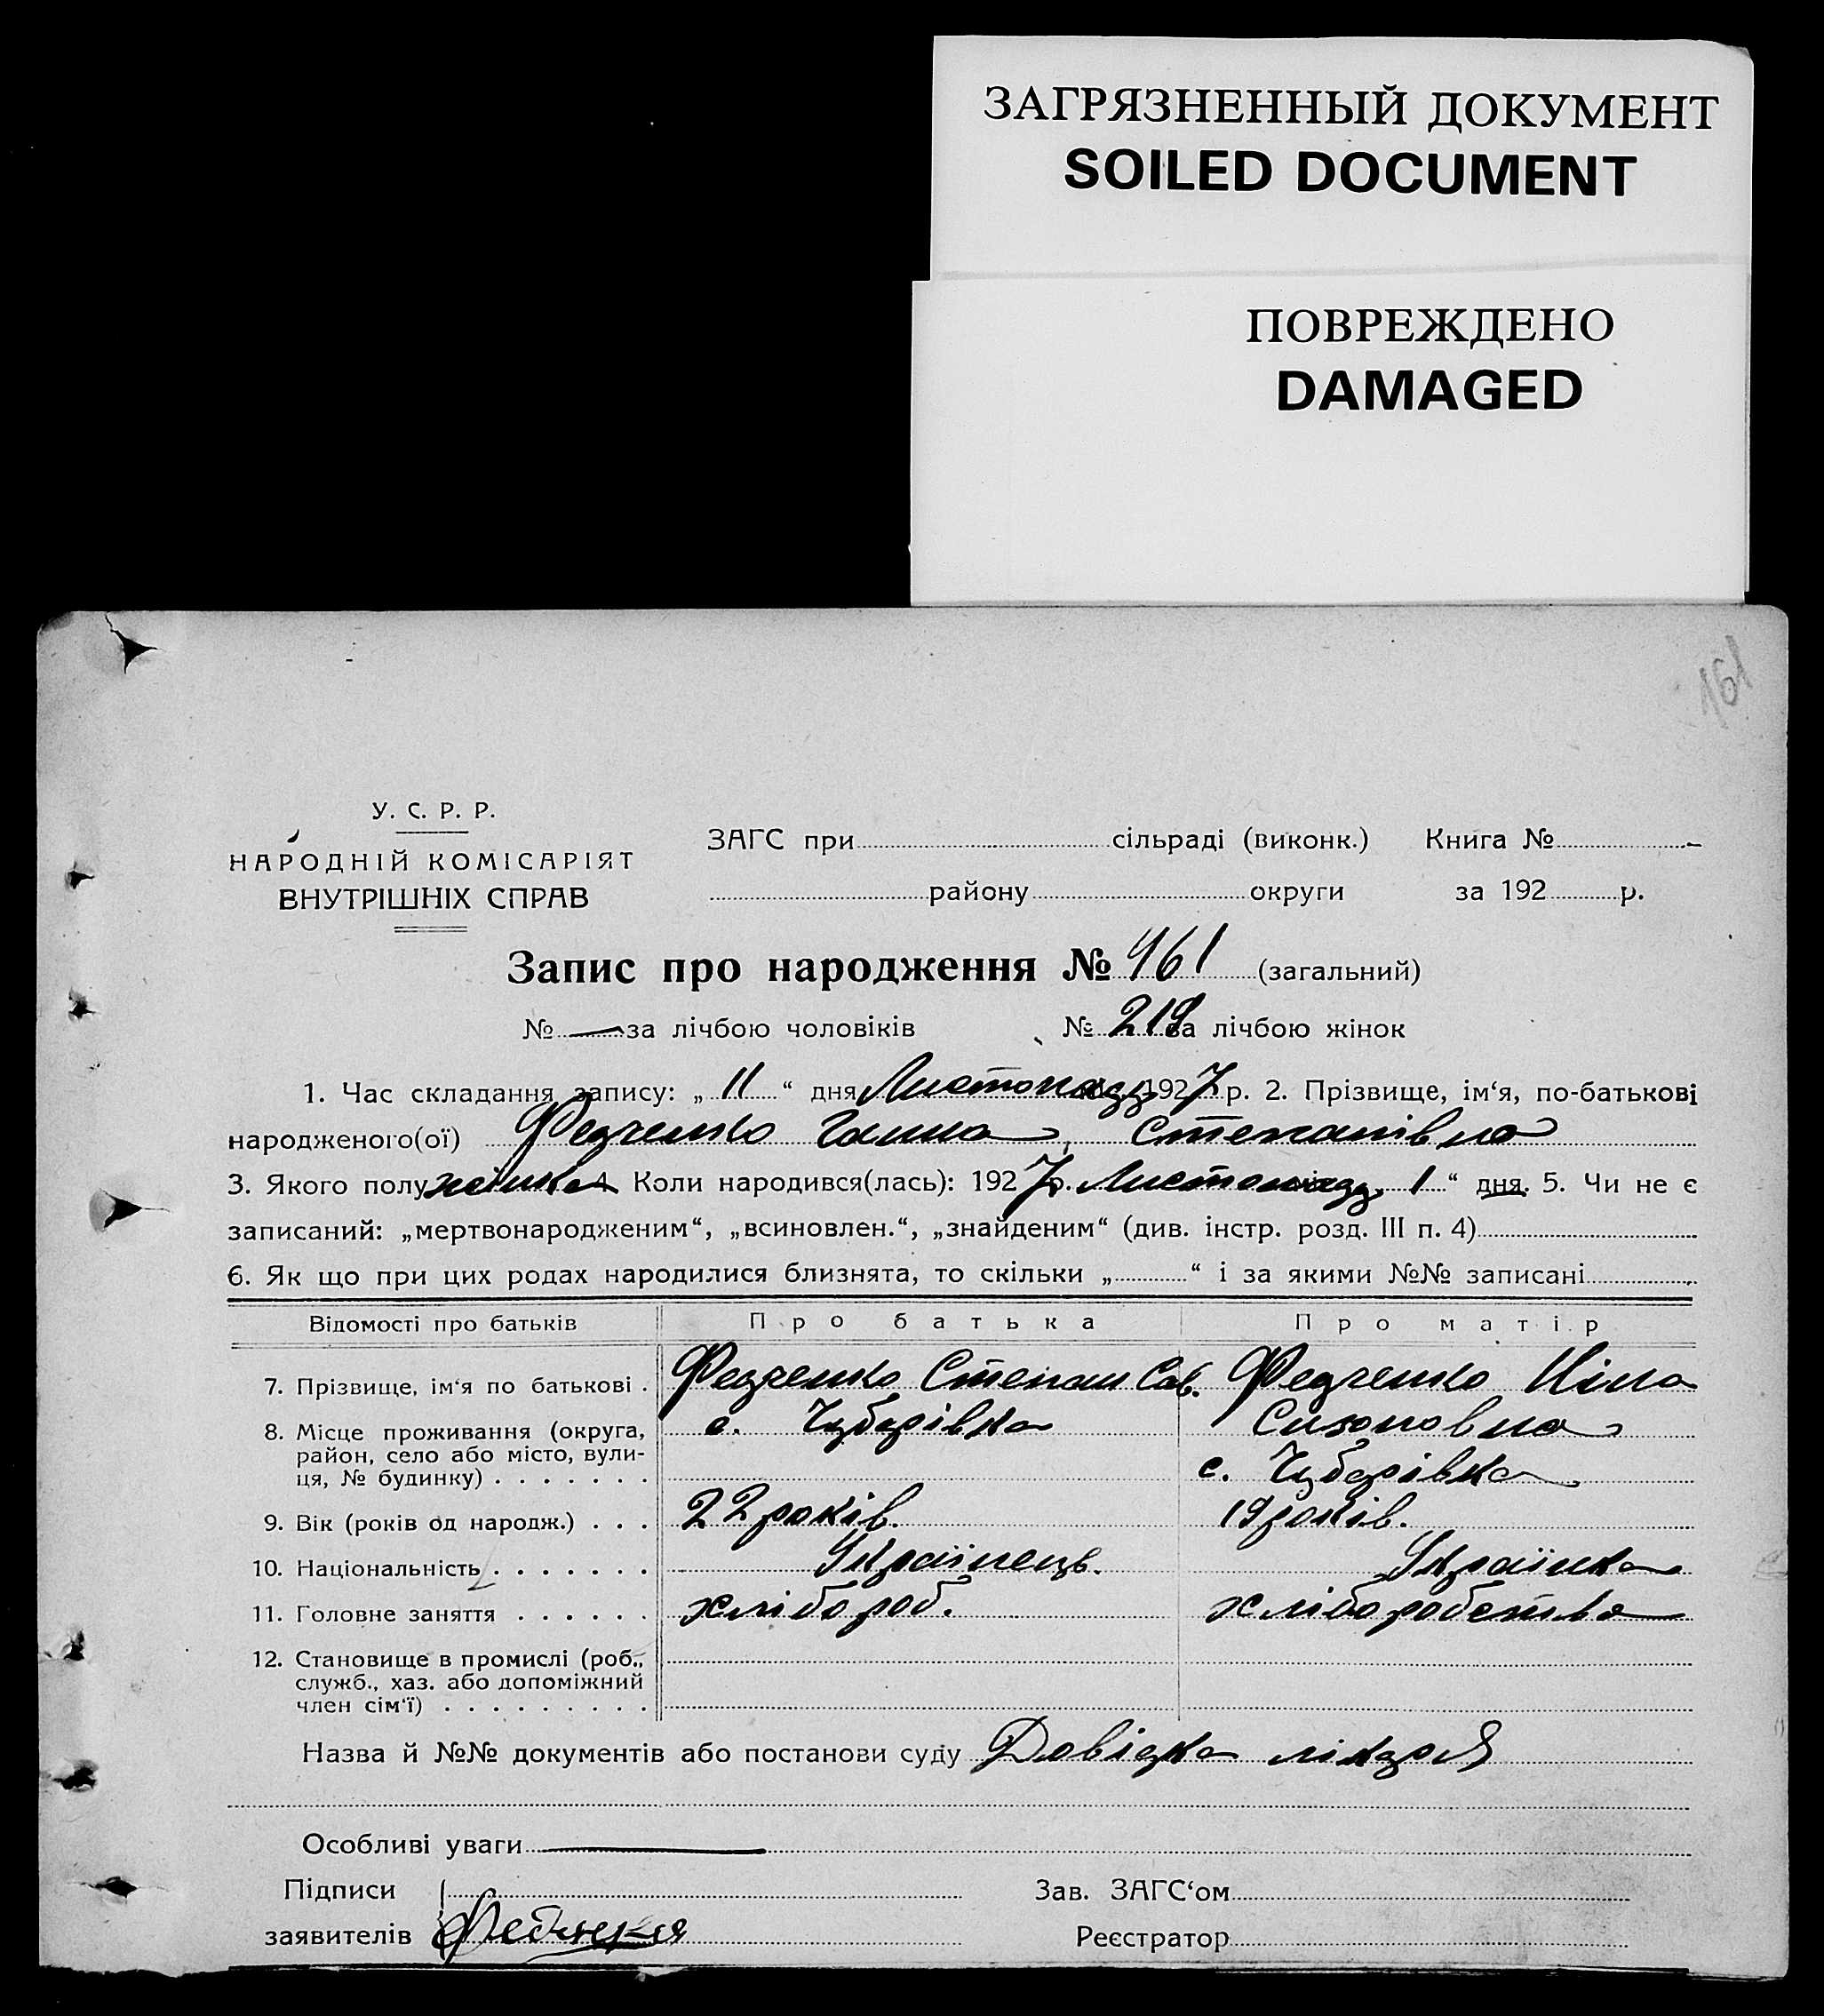 ЗАГРЯЗНЕННЫЙ ДОКУМЕНТ
SOILED DOCUMENT
ПОВРЕЖДЕНО
DAMAGED
161
У. С. Р. Р.
НАРОДНІЙ КОМІСАРІЯТ
ВНУТРІШНІХ СПРАВ
ЗАГС при сільраді (виконк.) Книга №
району округи за 192 р.
Запис про народження № 461 (загальний)
№ — за лічбою чоловіків № 219 за лічбою жінок
1. Час складання запису: „ 11 “ дня Листопада 1927 р. 2. Прізвище, ім‘я, по-батькові
народженого(ої) Федченко Ганна Степанівна
3. Якого полу жінка 4. Коли народився(лась): 1927 р. Листопада 1 “ дня. 5. Чи не є
записаний: „мертвонародженим“, „всиновлен.“, „знайденим“ (див. інстр. розд. III п. 4)
6. Як що при цих родах народилися близнята, то скільки „ “ і за якими №№ записані
Відомості про батьків Про батька Про матір
7. Прізвище, ім‘я по батькові . Федченко Степан Сав. Федченко Ніна
Сизоновна
8. Місце проживання (округа, с. Чубарівка
район, село або місто, вули-
ця, № будинку) . . . . . . . с. Чубарівка
9. Вік (років од народж.) . . . 22 років. 19 років.
10. Національність . . . . . . . Українець. Українка
11. Головне заняття . . . . . . хлібороб. хліборобство
12. Становище в промислі (роб.,
служб., хаз. або допоміжний
член сім‘ї) . . . . . . . . .
Назва й №№ документів або постанови суду Довідка лікаря
Особливі уваги —
Підписи Зав. ЗАГС‘ом
заявителів Реєстратор